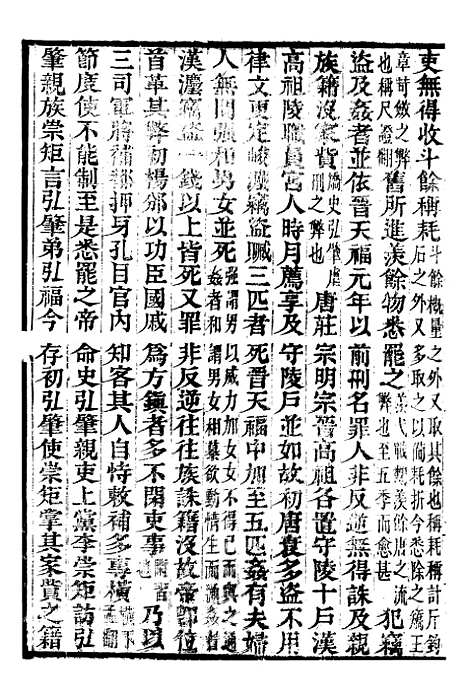 吏無得收斗餘稱耗斗餘概量之外又取其餘也稱耗稱計斤鈞石之外又多取之以備耗折今悉除之竊王
章苛斂之弊也稱尺證翻舊所進羨餘物悉罷之羨弋戰翻羨餘唐之流弊也至五季而愈甚犯竊
盜及姦者並依晉天福元年以前刑名罪人非反逆無得誅及親
族籍沒家貲矯史弘肇虐刑之弊也唐莊宗明宗晉高祖各置守陵十戶漢
高祖陵職員宮人時月薦享及守陵戶並如故初唐衰多盜不用
律文更定峻灋竊盜贓三匹者死晉天福中加至五匹姦有夫婦
人無問彊和男女並死強謂男以威力加女女不得已而與之姦者和謂男女相慕欲動情生而通姦者
漢灋竊盜一錢以上皆死又罪非反逆往往族誅籍沒故帝即位
首革其弊初楊邠以功臣國戚爲方鎭者多不閑吏事乃以
三司軍將補都押牙孔目官內知客其人自恃敕補多專橫
節度使不能制至是悉罷之帝命史弘肇親吏上黨李崇矩訪弘
肇親族崇矩言弘肇弟弘福今存初弘肇使崇矩掌其家貲之籍